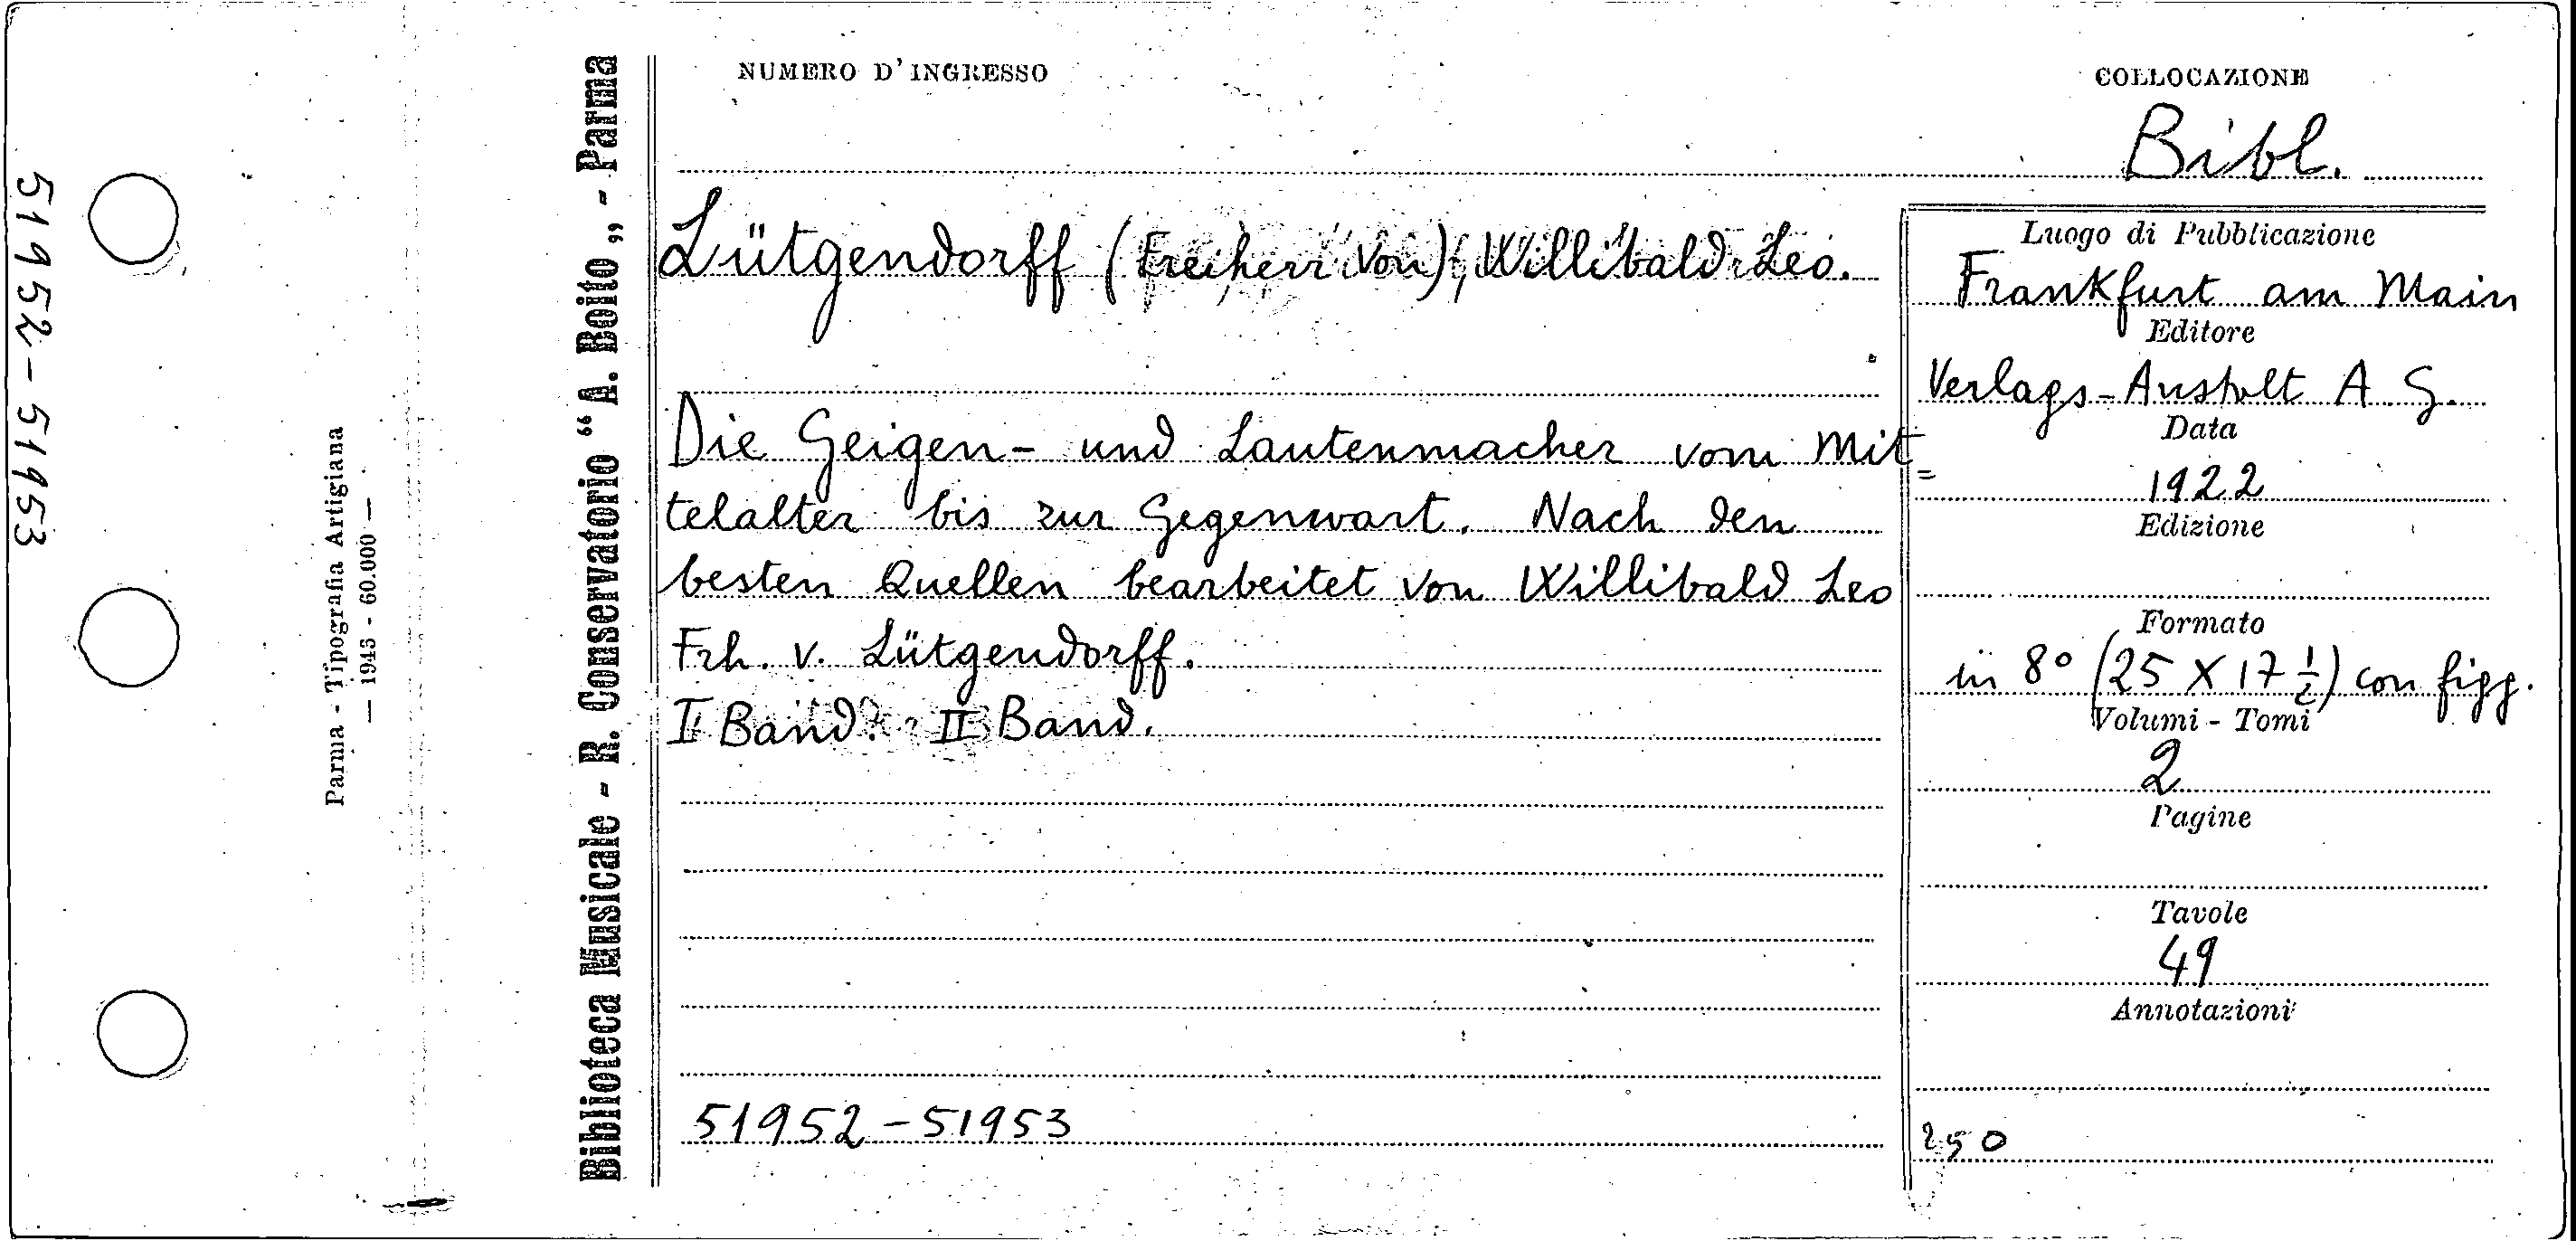 51952-51953
Parma - Tipografia Artigiana
— 1943 - 60.000 —
Biblioteca Musicale - R. Conservatorio “A. Boito„ - Parma
NUMERO D'INGRESSO
COLLOCAZIONE
Bibl.
Lütgendorff (Freiherr von), Willibald Leo.
Die Geigen- und Lautenmacher vom Mit=
telalter bis zur Gegenwart. Nach den
besten Quellen bearbeitet von Willibald Leo
Frh. v. Lütgendorff.
I Band. II Band.
51952-51953
Luogo di Pubblicazione
Frankfurt am Main
Editore
Verlags-Anstalt A.G.
Data
1922
Edizione
Formato
in 8° (25 X 17 ½) con figg.
Volumi - Tomi
2
Pagine
Tavole
49
Annotazioni
250